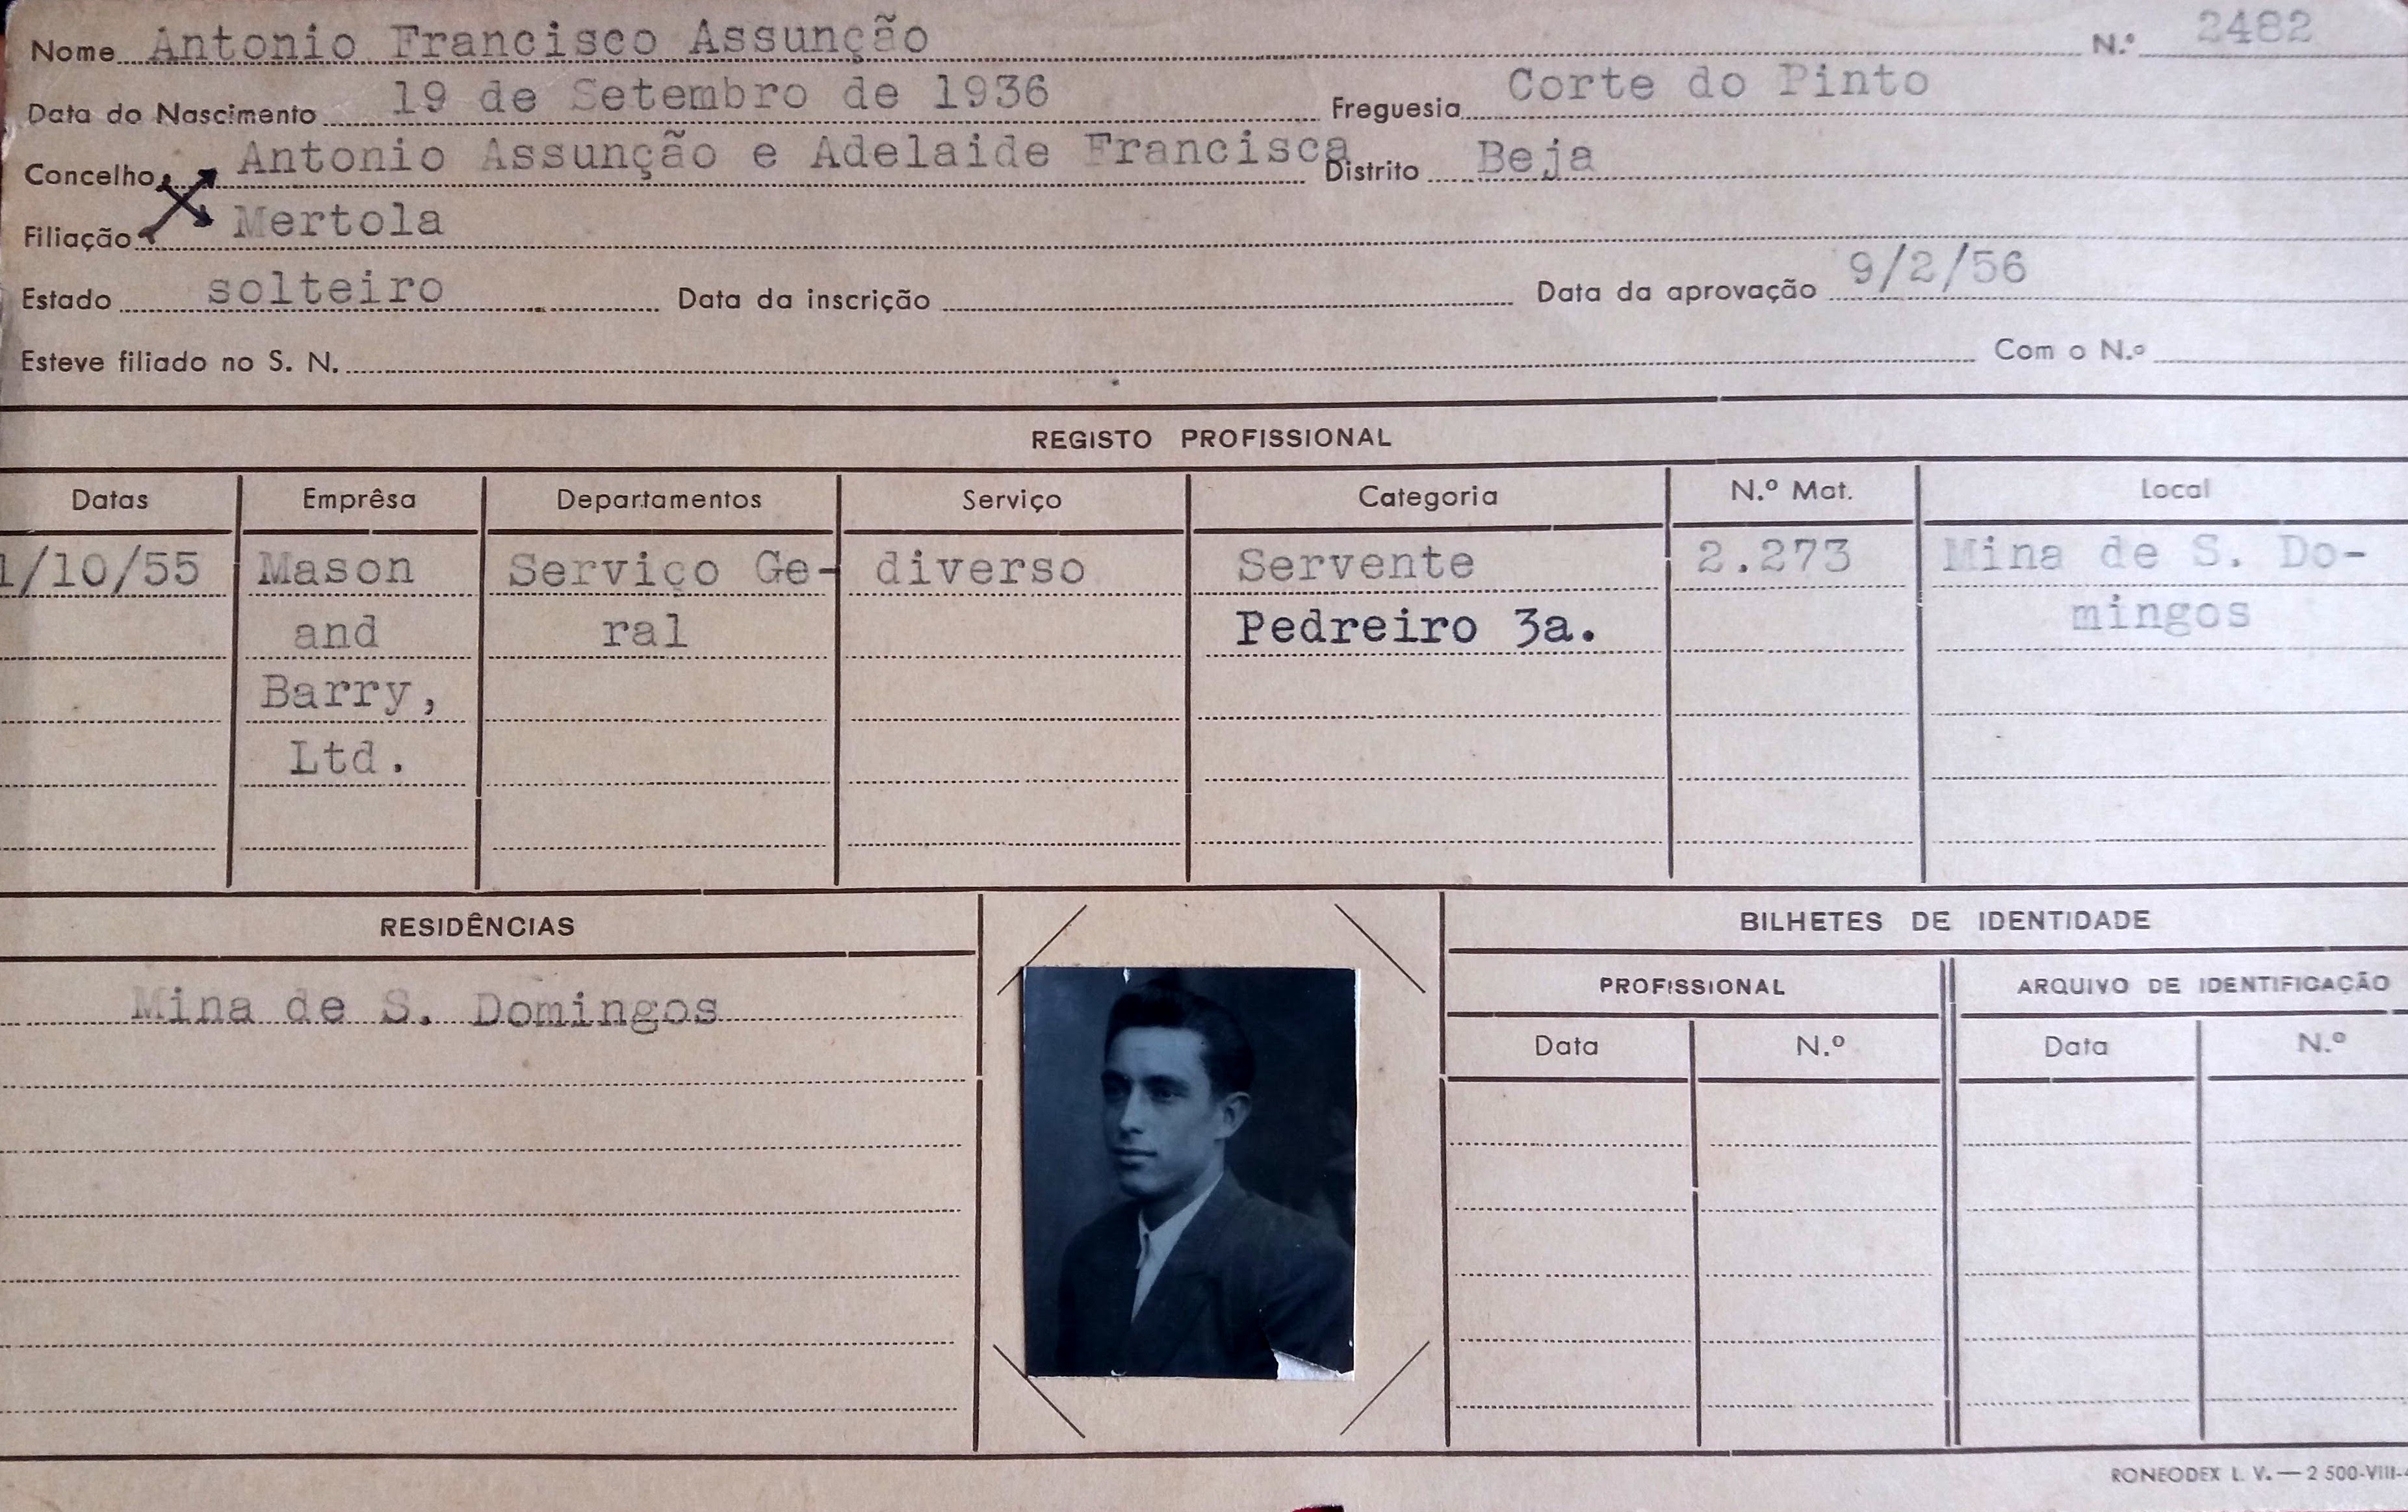 Nome Antonio Francisco Assunção N.º 2482
Data do Nascimento 19 de Setembro de 1936 Freguesia Corte do Pinto
Concelho Antonio Assunção e Adelaide Francisca Distrito Beja
Filiação Mertola
Estado solteiro Data da inscrição Data da aprovação 9/2/56
Esteve filiado no S. N. Com o N.º
REGISTO PROFISSIONAL
Datas Emprêsa Departamentos Serviço Categoria N.º Mat. Local
1/10/55 Mason Serviço Ge- diverso Servente 2.273 Mina de S. Do-
and ral Pedreiro 3a. mingos
Barry,
Ltd.
RESIDÊNCIAS BILHETES DE IDENTIDADE
PROFISSIONAL ARQUIVO DE IDENTIFICAÇÃO
Mina de S. Domingos
Data N.º Data N.º
RONEODEX L. V. — 2 500-VIII-